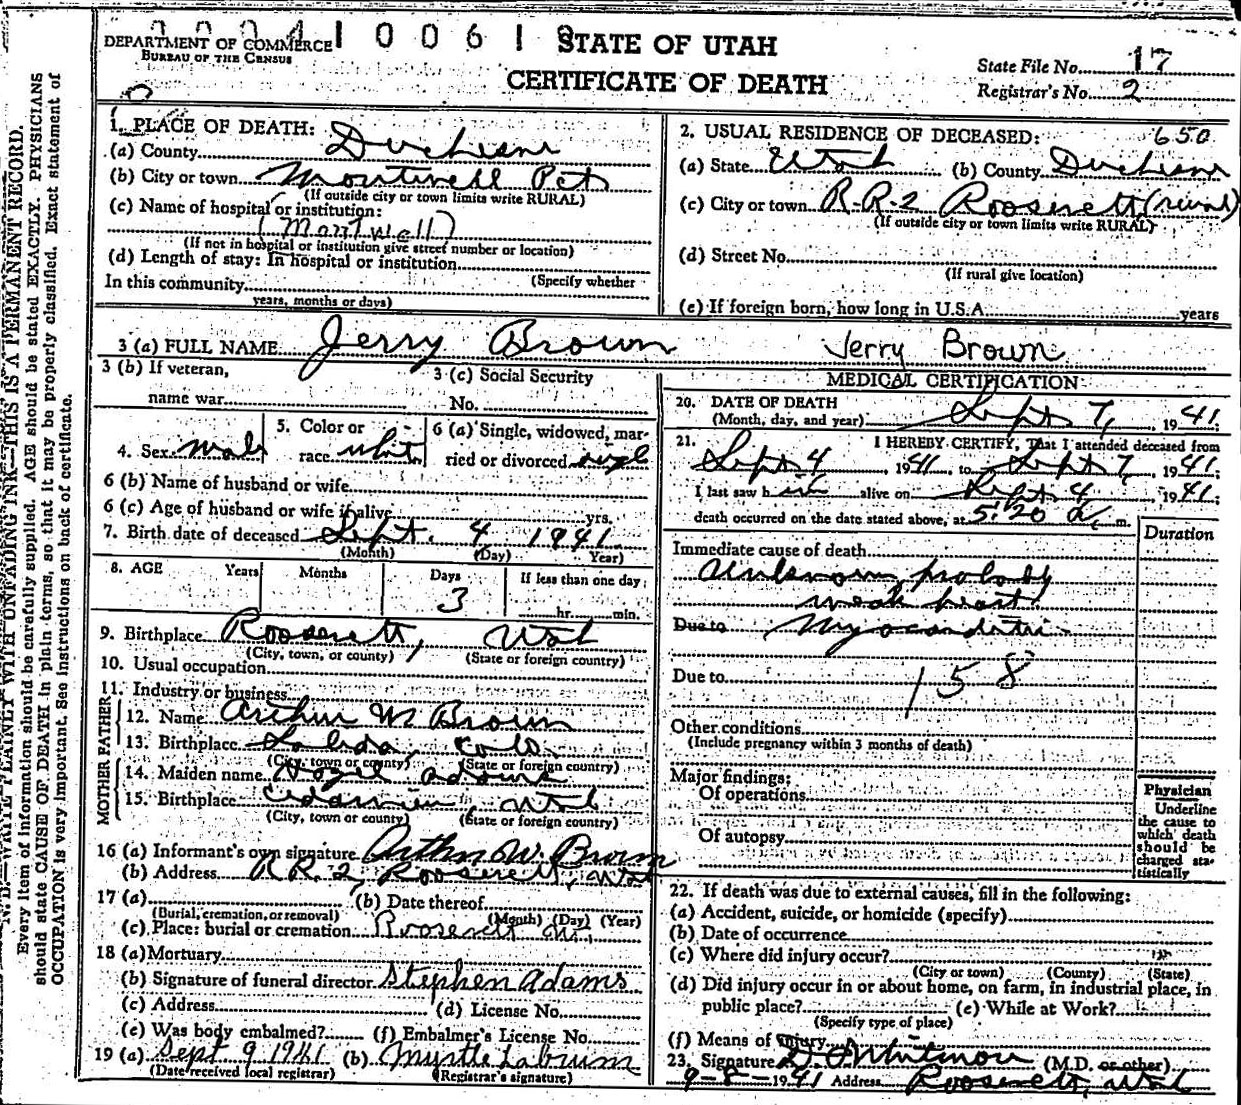 N. B.—WRITE PLAINLY WITH UNFADING INK—THIS IS A PERMANENT RECORD.
Every item of information should be carefully supplied. AGE should be stated EXACTLY. PHYSICIANS
should state CAUSE OF DEATH in plain terms, so that it may be properly classified. Exact statement of
OCCUPATION is very important. See instructions on back of certificate.
DEPARTMENT OF COMMERCE
BUREAU OF THE CENSUS
STATE OF UTAH
CERTIFICATE OF DEATH
State File No. 17
Registrar's No. 2
1. PLACE OF DEATH:
(a) County Duchesne
(b) City or town Montwell Pct
(If outside city or town limits write RURAL)
(c) Name of hospital or institution:
(Montwell)
(If not in hospital or institution give street number or location)
(d) Length of stay: In hospital or institution
(Specify whether
In this community
years, months or days)
2. USUAL RESIDENCE OF DECEASED: 650
(a) State Utah (b) County Duchesne
(c) City or town R.R.2 Roosevelt (rural)
(If outside city or town limits write RURAL)
(d) Street No.
(If rural give location)
(e) If foreign born, how long in U.S.A. years
3 (a) FULL NAME Jerry Brown Jerry Brown
3 (b) If veteran,
name war
3 (c) Social Security
No.
4. Sex male
5. Color or
race white
6 (a) Single, widowed, mar-
ried or divorced singl
6 (b) Name of husband or wife
6 (c) Age of husband or wife if alive yrs.
7. Birth date of deceased Sept. 4 1941
(Month) (Day) Year)
8. AGE Years Months Days If less than one day
3 hr. min.
9. Birthplace Roosevelt, Utah
(City, town, or county) (State or foreign country)
10. Usual occupation
11. Industry or business
FATHER
12. Name Arthur W Brown
13. Birthplace Salida, Colo.
(City, town or county) (State or foreign country)
MOTHER
14. Maiden name Hazel Adams
15. Birthplace Utah
(City, town or county) (State or foreign country)
16 (a) Informant's own signature Arthur W. Brown
(b) Address R.R. 2, Roosevelt, Utah
17 (a) (b) Date thereof
(Burial, cremation, or removal) (Month) (Day) (Year)
(c) Place: burial or cremation Roosevelt
18 (a) Mortuary
(b) Signature of funeral director Stephen Adams
(c) Address (d) License No.
(e) Was body embalmed? (f) Embalmer's License No.
19 (a) Sept 9 1941 (b) Myrtle Labrum
(Date received local registrar) (Registrar's signature)
MEDICAL CERTIFICATION
20. DATE OF DEATH
(Month, day, and year) Sept 7, 1941.
21. I HEREBY CERTIFY, That I attended deceased from
Sept 4, 1941 to Sept 7, 1941;
I last saw him alive on Sept 4, 1941;
death occurred on the date stated above, at 5:20 a. m.
Duration
Immediate cause of death
Unknown, probably
weak heart
Due to Myocarditis
Due to 158
Other conditions
(Include pregnancy within 3 months of death)
Major findings:
Of operations
Of autopsy
Physician
Underline
the cause to
which death
should be
charged sta-
tistically
22. If death was due to external causes, fill in the following:
(a) Accident, suicide, or homicide (specify)
(b) Date of occurrence
(c) Where did injury occur?
(City or town) (County) (State)
(d) Did injury occur in or about home, on farm, in industrial place, in
public place? (e) While at Work?
(Specify type of place)
(f) Means of injury
23. Signature (M.D. or other)
9-8-1941 Address Roosevelt, Utah